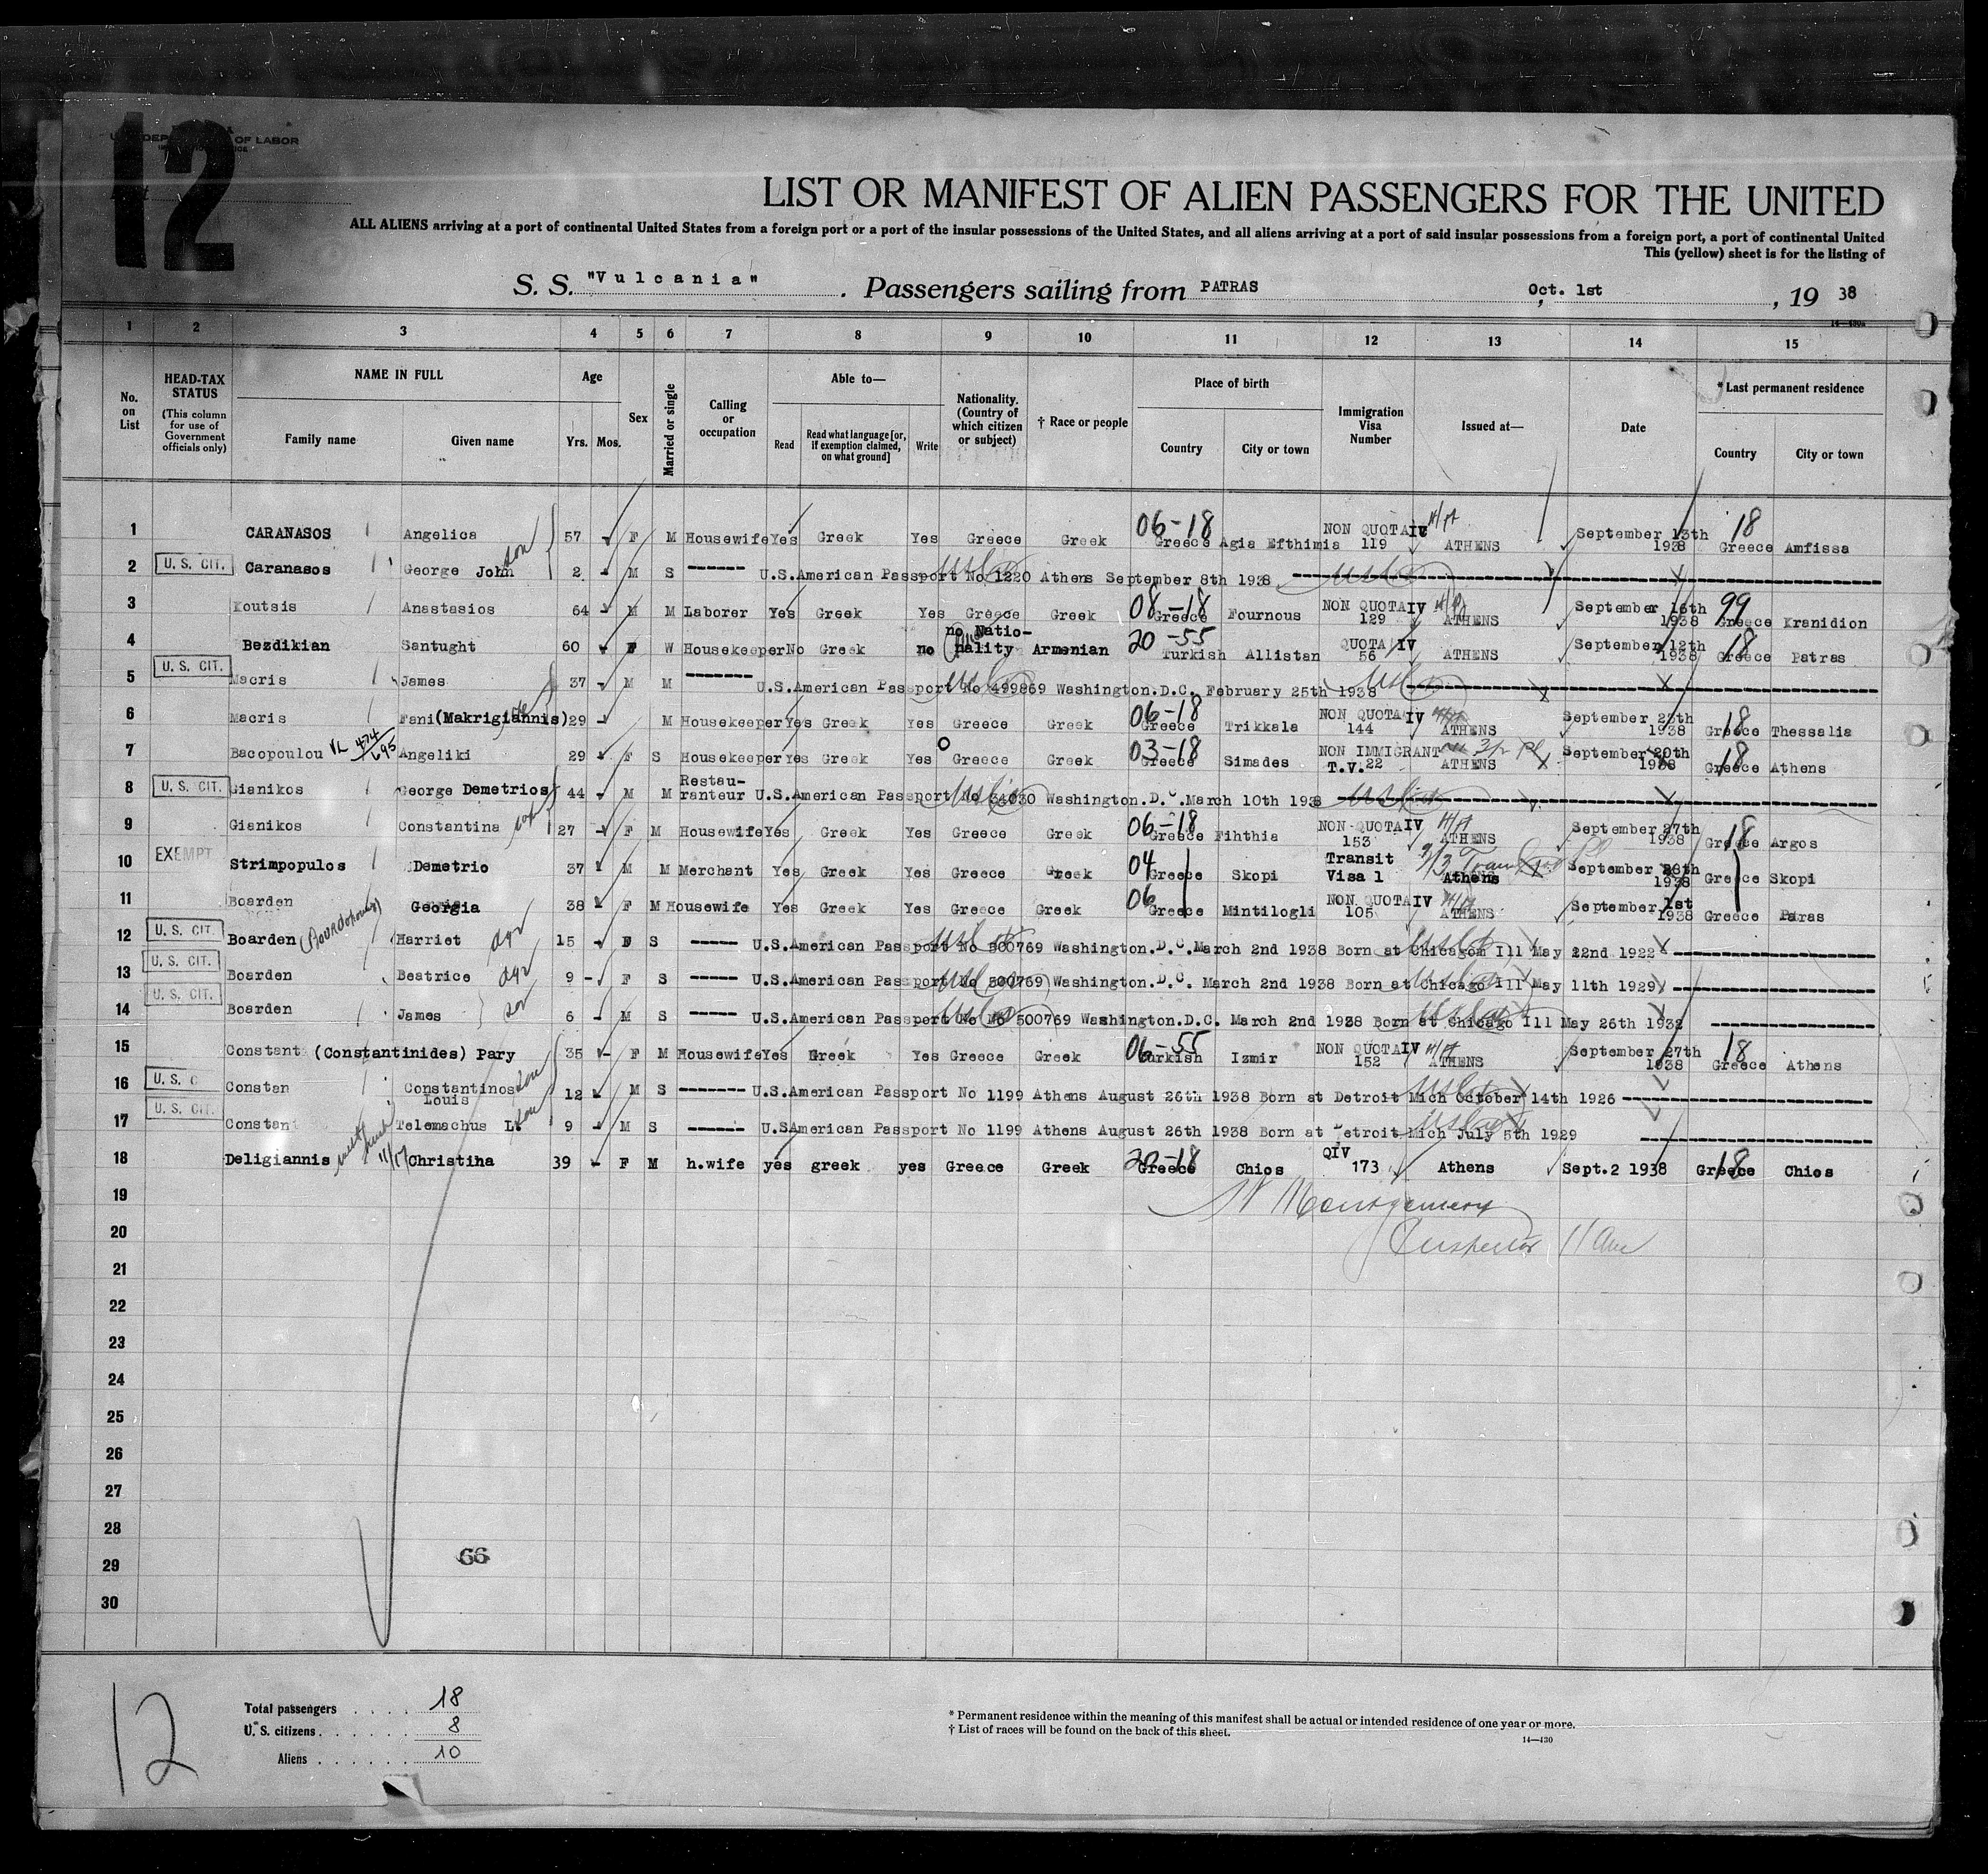 12
U.S. DEPARTMENT OF LABOR
LIST OR MANIFEST OF ALIEN PASSENGERS FOR THE UNITED
ALL ALIENS arriving at a port of continental United States from a foreign port or a port of the insular possessions of the United States, and all aliens arriving at a port of said insular possessions from a foreign port, a port of continental United
This (yellow) sheet is for the listing of
S. S. "Vulcania" . Passengers sailing from PATRAS Oct. 1st , 19 38
1 2 3 4 5 6 7 8 9 10 11 12 13 14 15
No. on List HEAD-TAX STATUS (This column for use of Government officials only) NAME IN FULL Family name Given name Age Yrs. Mos. Sex Married or single Calling or occupation Able to— Read Read what language [or, if exemption claimed, on what ground] Write Nationality. (Country of which citizen or subject) † Race or people Place of birth Country City or town Immigration Visa Number Issued at— Date * Last permanent residence Country City or town
1 CARANASOS Angelica 57 F M Housewife Yes Greek Yes Greece Greek 06-18 Greece Agia Efthimia NON QUOTA IV 119 ATHENS September 13th 1938 18 Greece Amfissa
2 U. S. CIT. Caranasos George John son 2 M S U.S.American Passport No 1220 Athens September 8th 1938
3 Koutsis Anastasios 64 M M Laborer Yes Greek Yes Greece Greek 08-18 Greece Fournous NON QUOTA IV 129 ATHENS September 16th 1938 99 Greece Kranidion
4 Bezdikian Santught 60 F W Housekeeper No Greek no no Natio-nality Armenian 20-55 Turkish Allistan QUOTA IV 56 ATHENS September 12th 1938 18 Greece Patras
5 U. S. CIT. Macris James 37 M M U.S.American Passport No 499869 Washington.D.C. February 25th 1938
6 Macris Fani (Makrigiannis) 29 M Housekeeper Yes Greek Yes Greece Greek 06-18 Greece Trikkala NON QUOTA IV 144 ATHENS September 23th 1938 18 Greece Thessalia
7 Bacopoulou VL 474/695 Angeliki 29 F S Housekeeper Yes Greek Yes Greece Greek 03-18 Greece Simades NON IMMIGRANT T.V. 22 ATHENS September 20th 1938 18 Greece Athens
8 U. S. CIT. Gianikos George Demetrios 44 M M Restau-ranteur U.S.American Passport No 34030 Washington.D.C. March 10th 1938
9 Gianikos Constantina 27 F M Housewife Yes Greek Yes Greece Greek 06-18 Greece Fihthia NON-QUOTA IV 153 ATHENS September 27th 1938 18 Greece Argos
10 EXEMPT Strimpopulos Demetrio 37 M M Merchant Yes Greek Yes Greece Greek 04 Greece Skopi Transit Visa 1 Athens September 28th 1938 Greece Skopi
11 Boarden Georgia 38 F M Housewife Yes Greek Yes Greece Greek 06 Greece Mintilogli NON QUOTA IV 105 ATHENS September 1st 1938 Greece Paras
12 U. S. CIT. Boarden Harriet dgr 15 F S U.S.American Passport No 500769 Washington.D.C. March 2nd 1938 Born at Chicagom Ill May 22nd 1922
13 U. S. CIT. Boarden Beatrice dgr 9 F S U.S.American Passport No 500769 Washington.D.C. March 2nd 1938 Born at Chicago Ill May 11th 1929
14 U. S. CIT. Boarden James son 6 M S U.S.American Passport No No 500769 Washington.D.C. March 2nd 1938 Born at Chicago Ill May 26th 1932
15 Constant (Constantinides) Pary 35 F M Housewife Yes Greek Yes Greece Greek 06-55 Turkish Izmir NON QUOTA IV 152 ATHENS September 27th 1938 18 Greece Athens
16 U. S. C Constan Constantinos Louis son 12 M S U.S.American Passport No 1199 Athens August 26th 1938 Born at Detroit Mich October 14th 1926
17 U. S. CIT. Constan Telemachus L. son 9 M S U.SAmerican Passport No 1199 Athens August 26th 1938 Born at Detroit Mich July 5th 1929
18 Deligiannis 11/17 Christina 39 F M h.wife yes greek yes Greece Greek 20-18 Greece Chios QIV 173 Athens Sept.2 1938 18 Greece Chios
19 Montgomery
20 Inspector 11 am
21
22
23
24
25
26
27
28
29 66
30
12
Total passengers . . . . 18
U. S. citizens . . . . . . 8
Aliens . . . . . . 10
* Permanent residence within the meaning of this manifest shall be actual or intended residence of one year or more.
† List of races will be found on the back of this sheet.
14—430